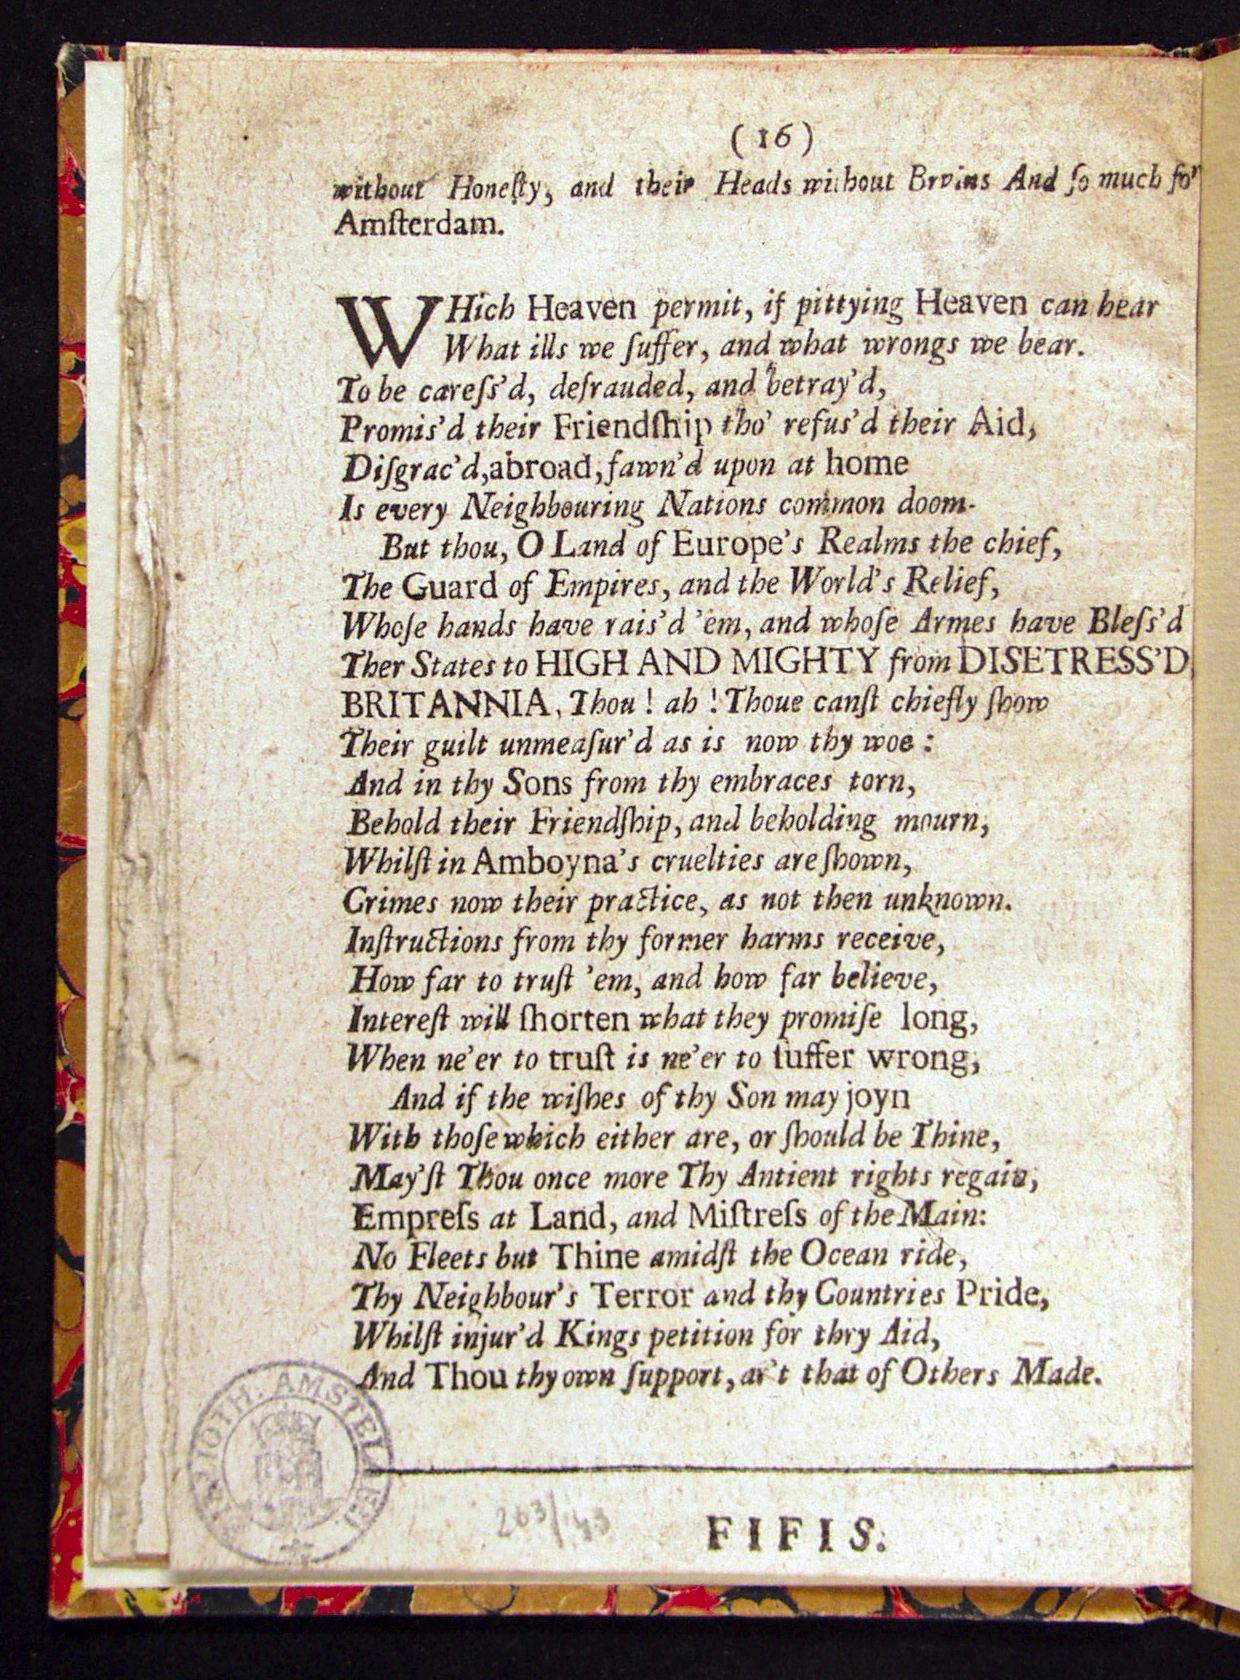 (16)
without Honeſty, and their Heads without Brvins And ſo much for
Amſterdam.
WHich Heaven permit, if pittying Heaven can hear
What ills we ſuffer, and what wrongs we bear.
To be careſs'd, defrauded, and betray'd,
Promis'd their Friendſhip tho' refus'd their Aid,
Diſgrac'd, abroad, fawn'd upon at home
Is every Neighbouring Nations common doom.
But thou, O Land of Europe's Realms the chief,
The Guard of Empires, and the World's Relief,
Whoſe hands have rais'd 'em, and whoſe Armes have Bleſs'd
Ther States to HIGH AND MIGHTY from DISETRESS'D,
BRITANNIA, Thou! ah! Thoue canſt chiefly ſhow
Their guilt unmeaſur'd as is now thy woe:
And in thy Sons from thy embraces torn,
Behold their Friendſhip, and beholding mourn,
Whilſt in Amboyna's cruelties are ſhown,
Crimes now their practice, as not then unknown.
Inſtructions from thy former harms receive,
How far to truſt 'em, and how far believe,
Intereſt will ſhorten what they promiſe long,
When ne'er to truſt is ne'er to ſuffer wrong,
And if the wiſhes of thy Son may joyn
With thoſe which either are, or ſhould be Thine,
May'ſt Thou once more Thy Antient rights regain,
Empreſs at Land, and Miſtreſs of the Main:
No Fleets but Thine amidſt the Ocean ride,
Thy Neighbour's Terror and thy Countries Pride,
Whilſt injur'd Kings petition for thry Aid,
And Thou thy own ſupport, ar't that of Others Made.
BIBLIOTH. AMSTELAED
263/43
FIFIS.